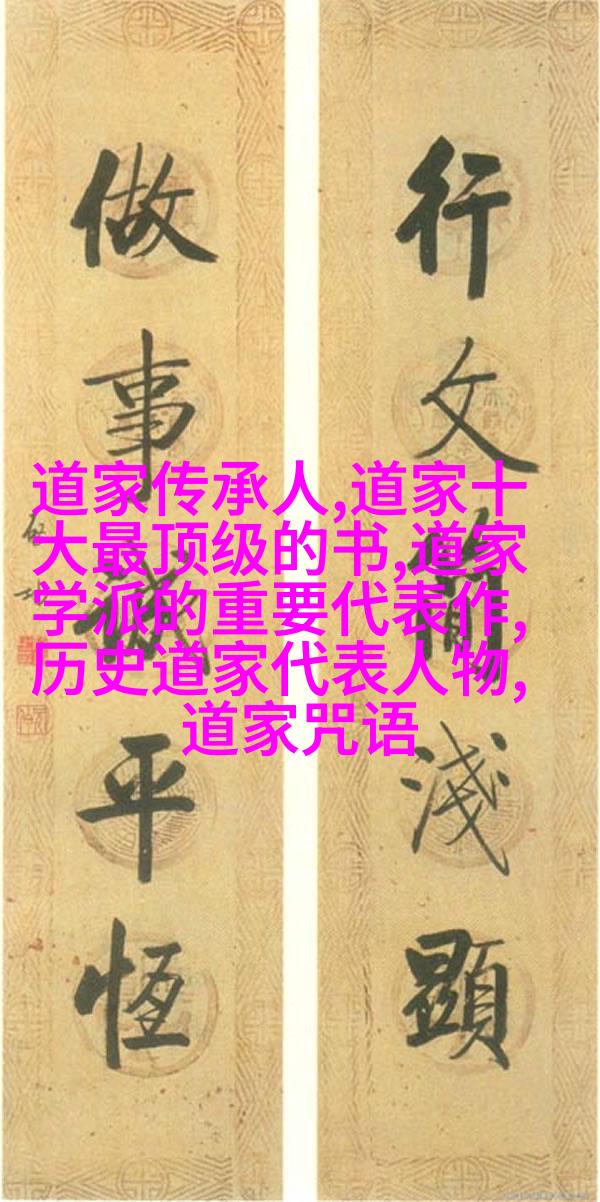 行文簡淺顯
做事誠平恆
道家传承人,道家十
大最顶级的书,道家
学派的重要代表作,
历史道家代表人物,
道家咒语